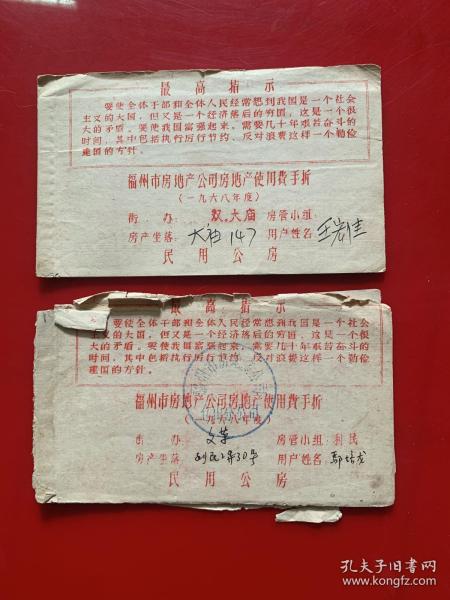 最高指示
要使全体干部和全体人民经常想到我国是一个社会
主义的大国，但又是一个经济落后的穷国，这是一个很
大的矛盾。要使我国富强起来，需要几十年艰苦奋斗的
时间，其中包括执行厉行节约、反对浪费这样一个勤俭
建国的方针。
福州市房地产公司房地产使用费手折
（一九六八年度）
街办：双.大庙 房管小组：
房产坐落：大庙147 用户姓名
民用公房
最高指示
要使全体干部和全体人民经常想到我国是一个社会
主义的大国，但又是一个经济落后的穷国，这是一个很
大的矛盾。要使我国富强起来，需要几十年艰苦奋斗的
时间，其中包括执行厉行节约、反对浪费这样一个勤俭
建国的方针。
福州市房地产公司房地产使用费手折
（一九六八年度）
街办：文革 房管小组：利民
房产坐落：30号 用户姓名
民用公房
孔夫子旧书网
www.kongfz.com